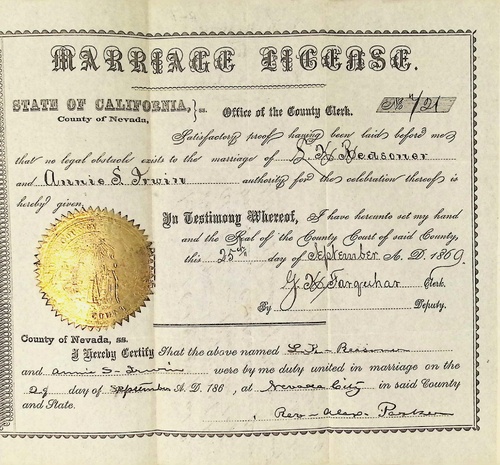 MARRIAGE LICENSE.
STATE OF CALIFORNIA, } ss. Office of the County Clerk. No. 121
County of Nevada,
Satisfactory proof having been laid before me
that no legal obstacle exists to the marriage of L. H. Reasoner
and Annie S. Irwin authority for the celebration thereof is
hereby given.
In Testimony Whereof, I have hereunto set my hand
and the Seal of the County Court of said County,
this 25th day of September A. D. 1869.
G. K. Farquhar Clerk.
By Deputy.
County of Nevada, ss.
I Hereby Certify That the above named
and Annie S. Irwin were by me duly united in marriage on the
day of September A. D. 186 , at Nevada City in said County
and State.
Rev. Alex. Parker